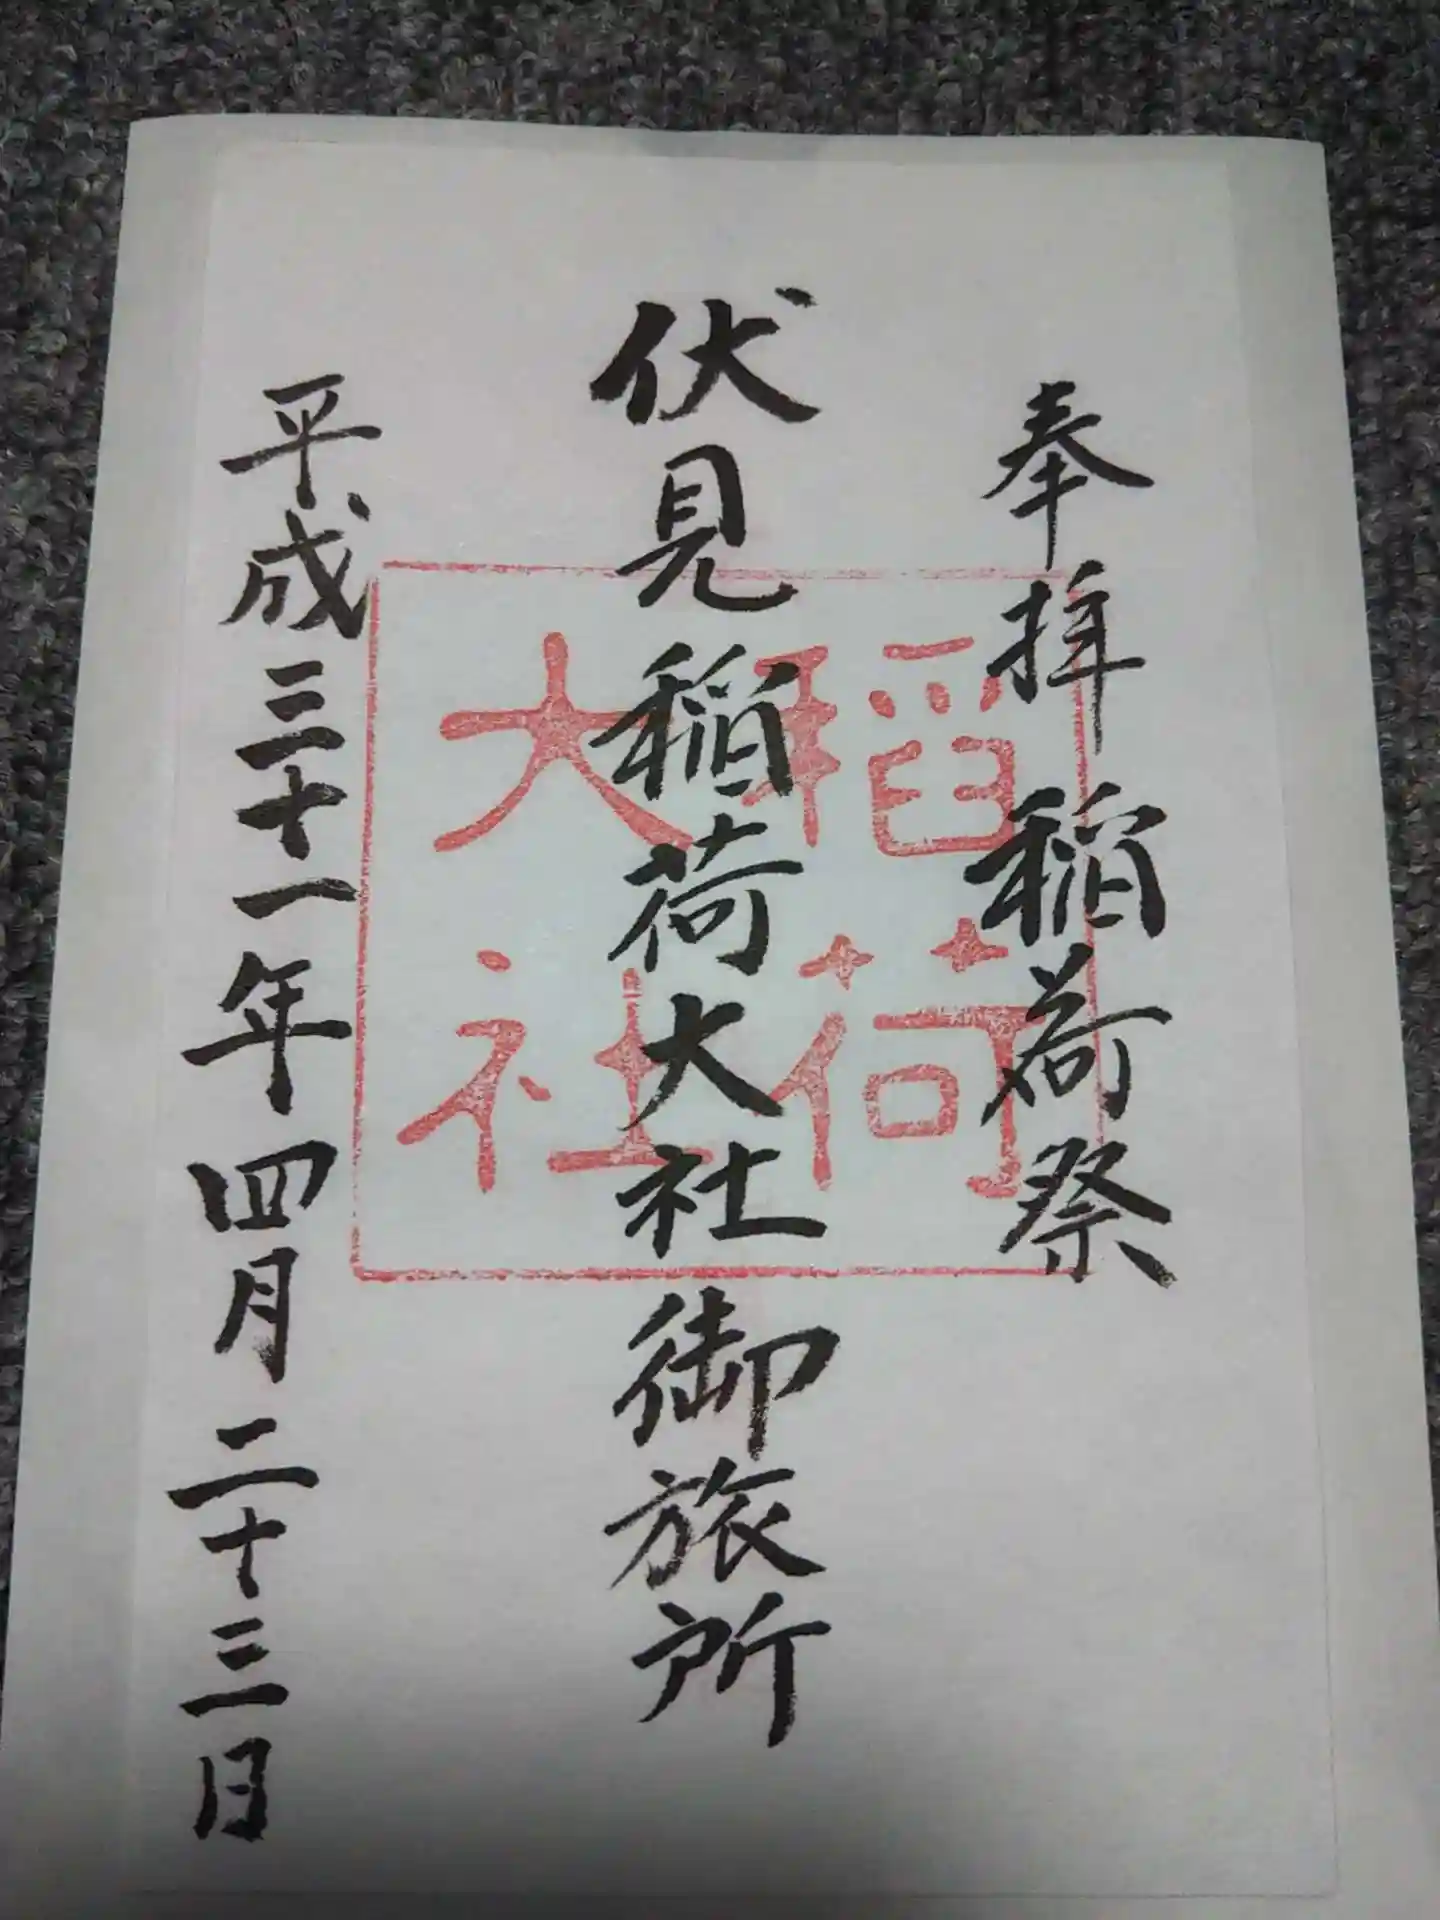 奉拝 稲荷祭
伏見稲荷大社御旅所
平成三十一年四月二十三日
稲荷
大社